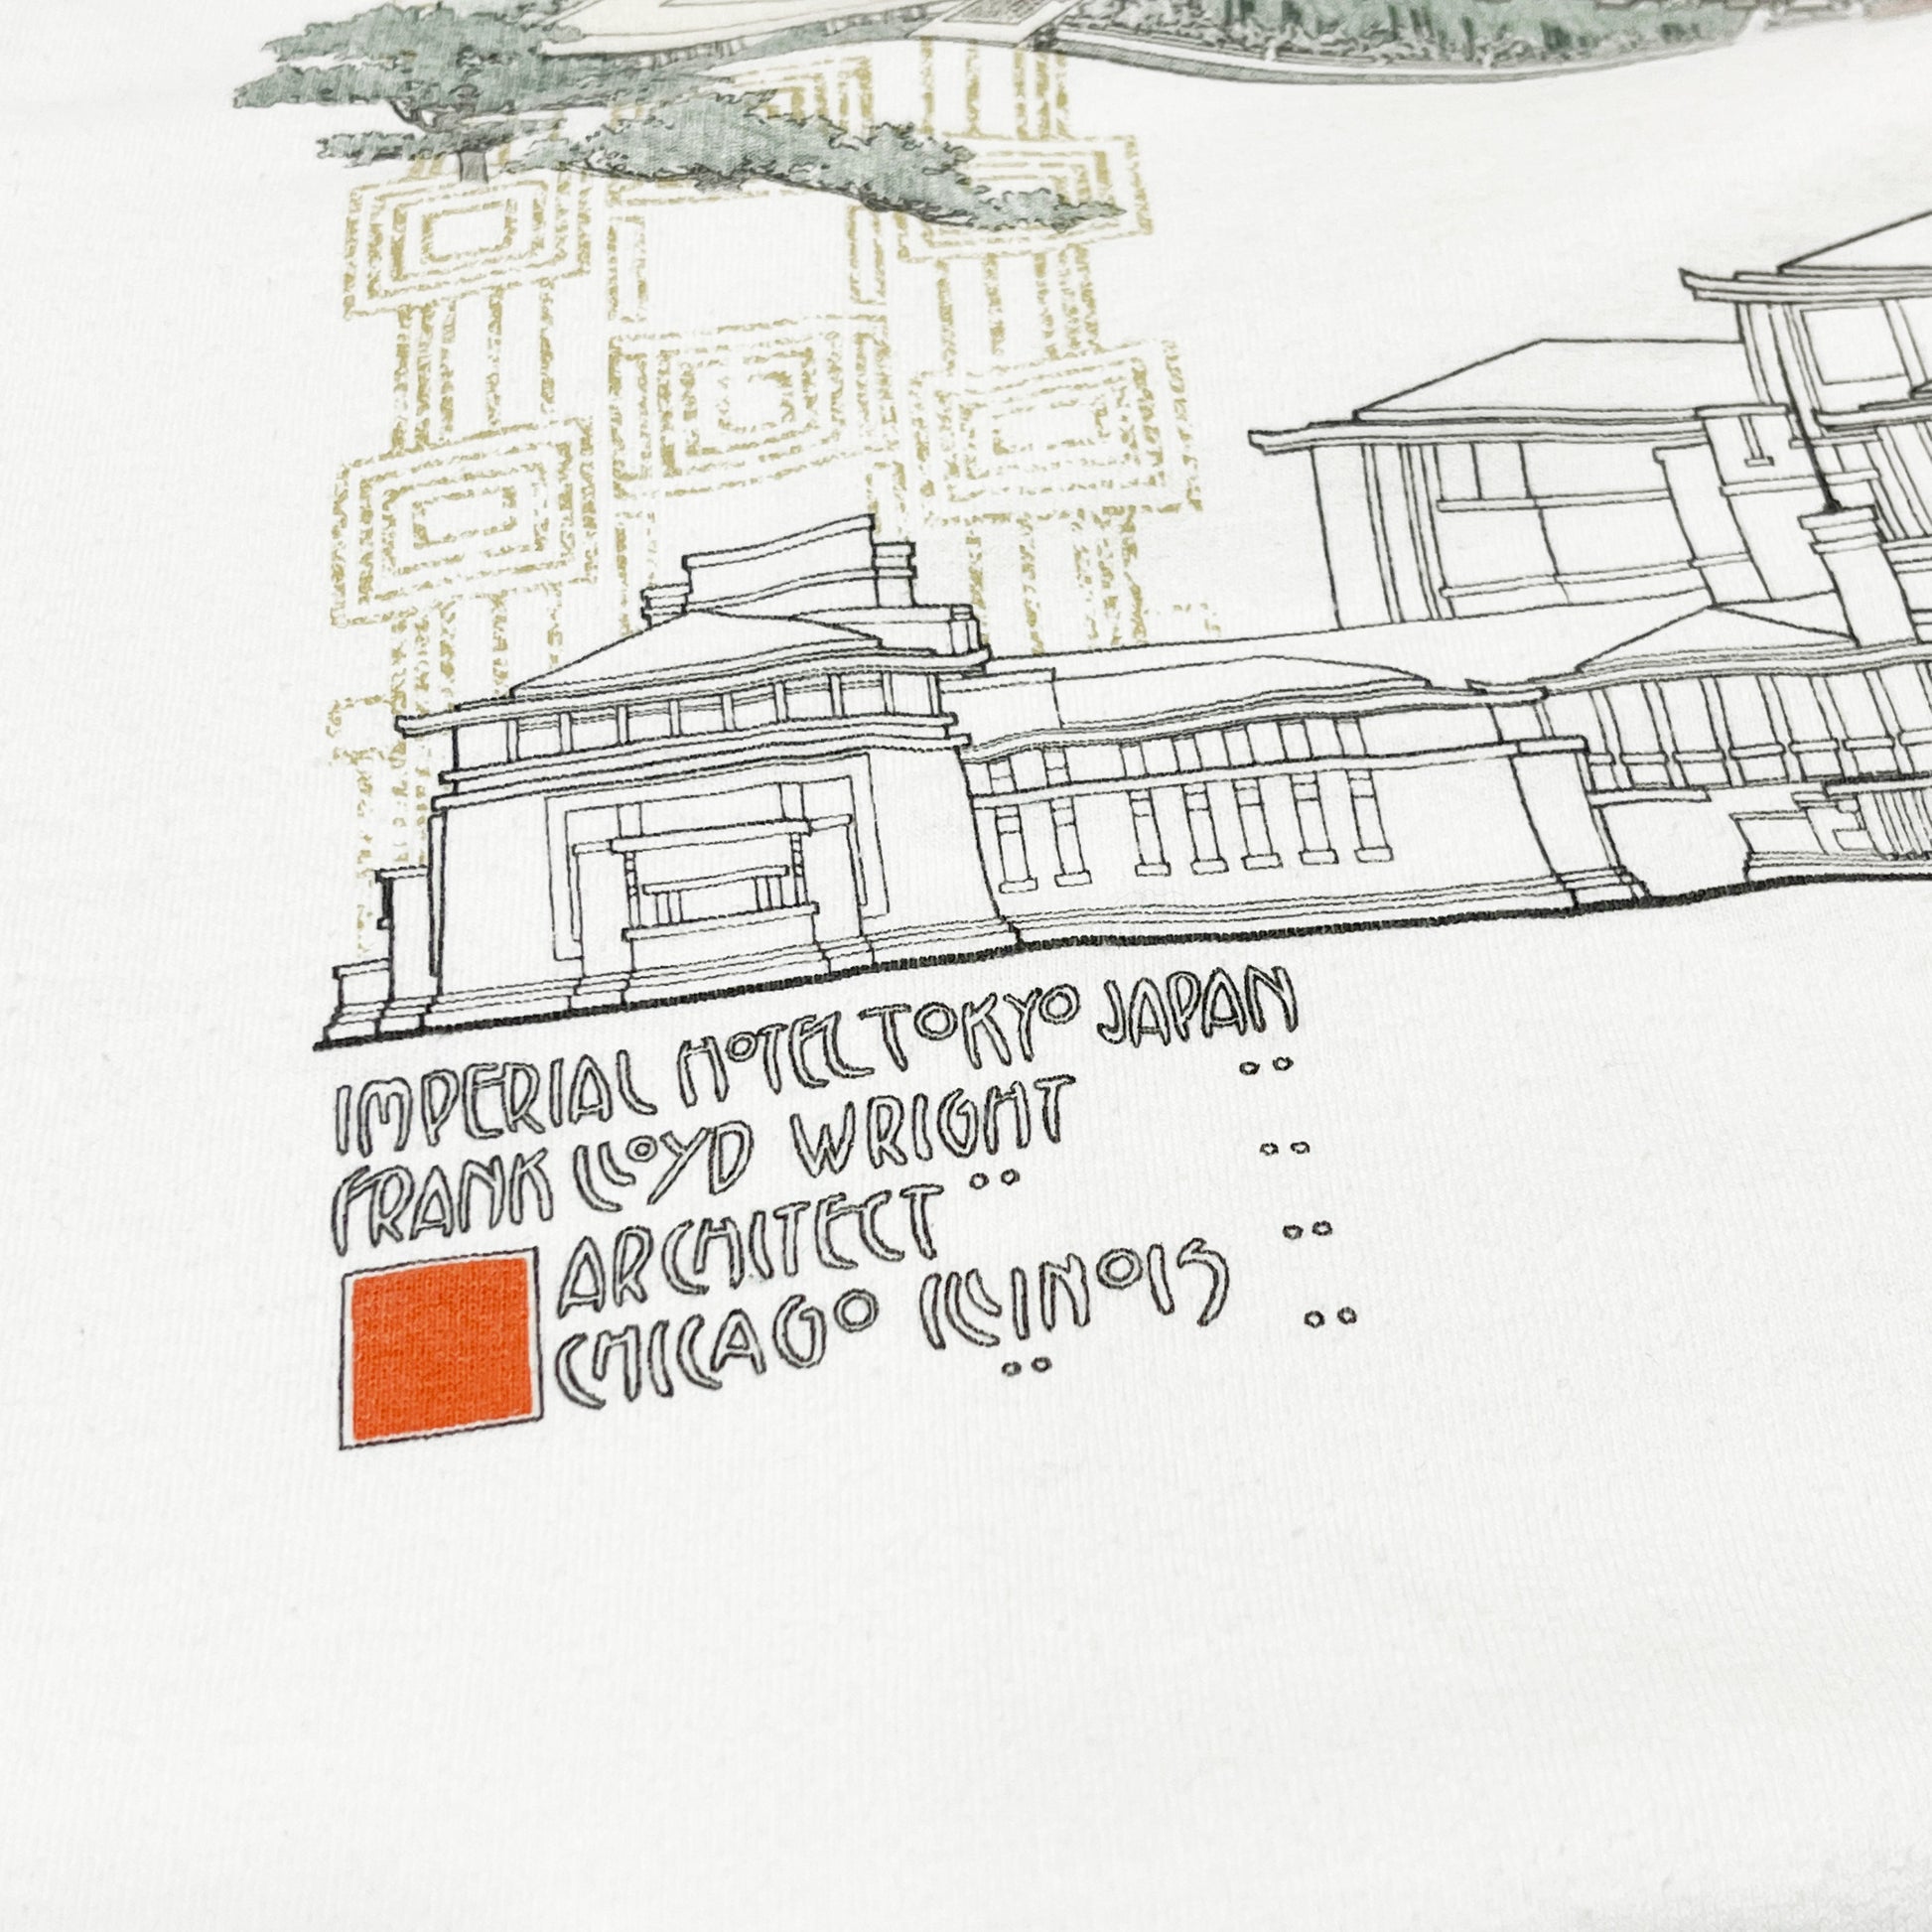 IMPERIAL HOTEL TOKYO JAPAN
FRANK LLOYD WRIGHT
ARCHITECT
CHICAGO ILLINOIS